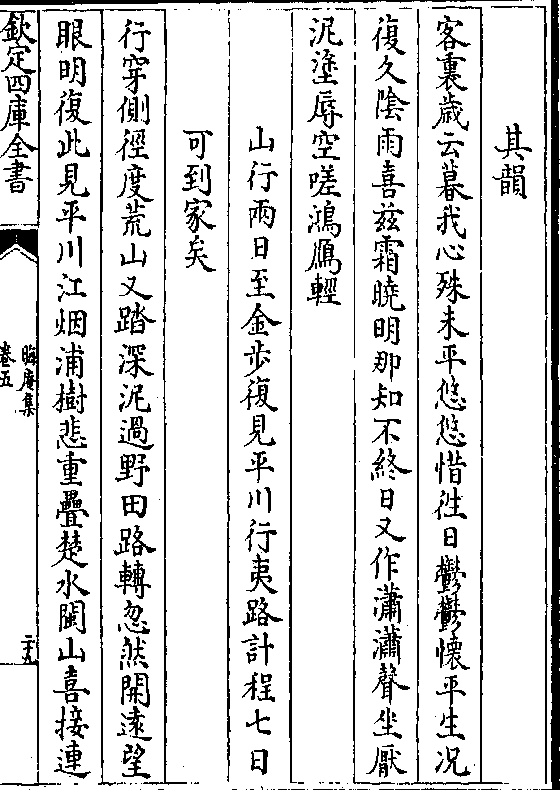 其韻
客裏歲云暮我心殊未平悠悠惜徃日鬱鬱懷平生况
復久陰雨喜兹霜曉明那知不終日又作瀟瀟聲坐厭
泥塗辱空嗟鴻鴈輕
山行兩日至金步復見平川行夷路計程七日
可到家矣
行穿側徑度荒山又踏深泥過野田路轉忽然開遠望
眼明復此見平川江烟浦樹悲重疊楚水閩山喜接連
欽定四庫全書
晦庵集
卷五
二九